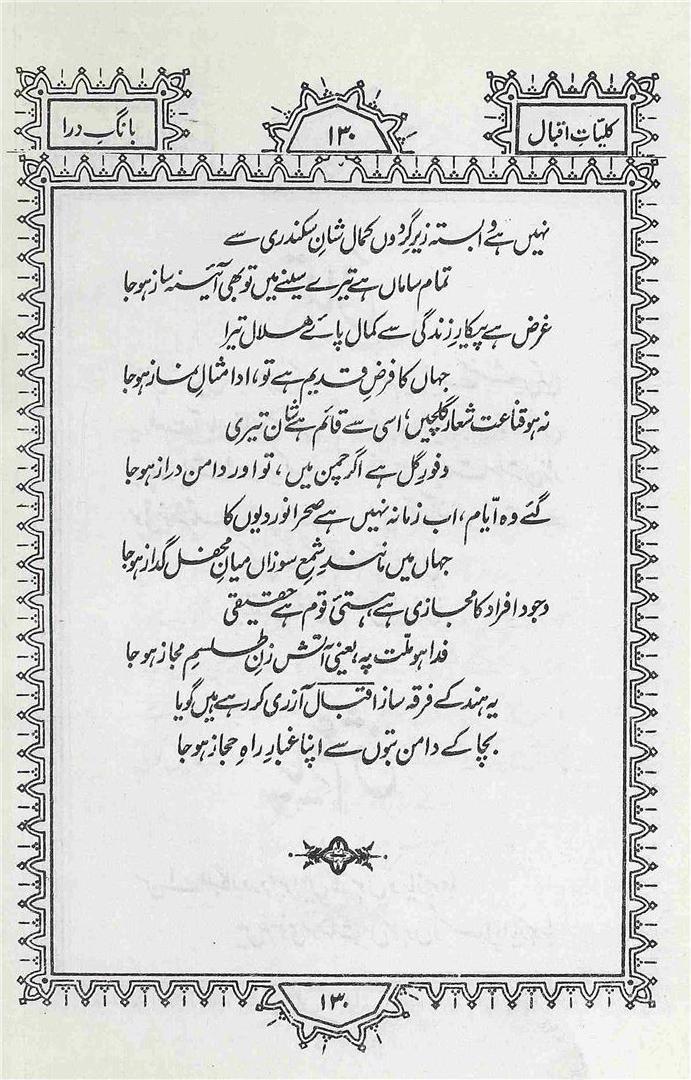 کلیاتِ اقبال
۱۳۰
بانگِ درا
نہیں ہے وابستہ زیرِ گردوں کمال شانِ سکندری سے
تمام ساماں ہے تیرے سینے میں تو بھی آئینہ ساز ہو جا
غرض ہے پیکارِ زندگی سے کمال پائے ہلال تیرا
جہاں کا فرضِ قدیم ہے تو، ادا مثالِ نماز ہو جا
نہ ہو قناعت شعار گلچیں! اسی سے قائم ہے شان تیری
وفورِ گل ہے اگر چمن میں، تو اور دامن دراز ہو جا
گئے وہ ایّام، اب زمانہ نہیں ہے صحرانوردیوں کا
جہاں میں مانندِ شمعِ سوزاں میانِ محفل گداز ہو جا
وجود افراد کا مجازی ہے ہستیٔ قوم ہے حقیقی
فدا ہو ملّت پہ، یعنی آتش زنِ طلسمِ مجاز ہو جا
یہ ہند کے فرقہ ساز اقبال آزری کر رہے ہیں گویا
بچا کے دامن بتوں سے اپنا غبارِ راہِ حجاز ہو جا
۱۳۰